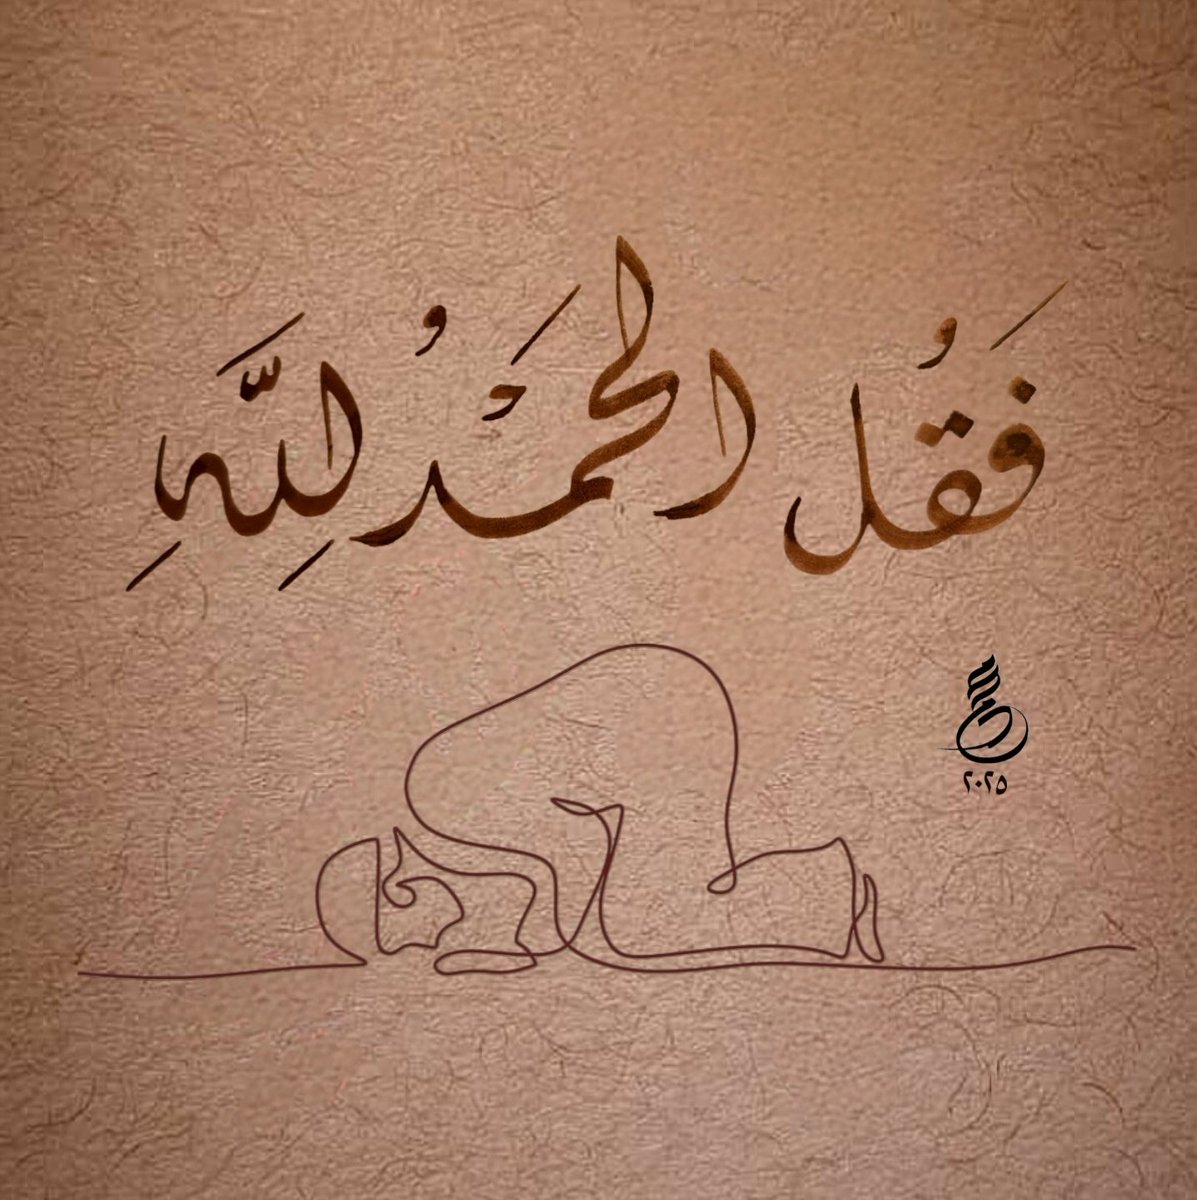 فَقُل الحَمْدُ لِلَّهِ
٢٠٢٥